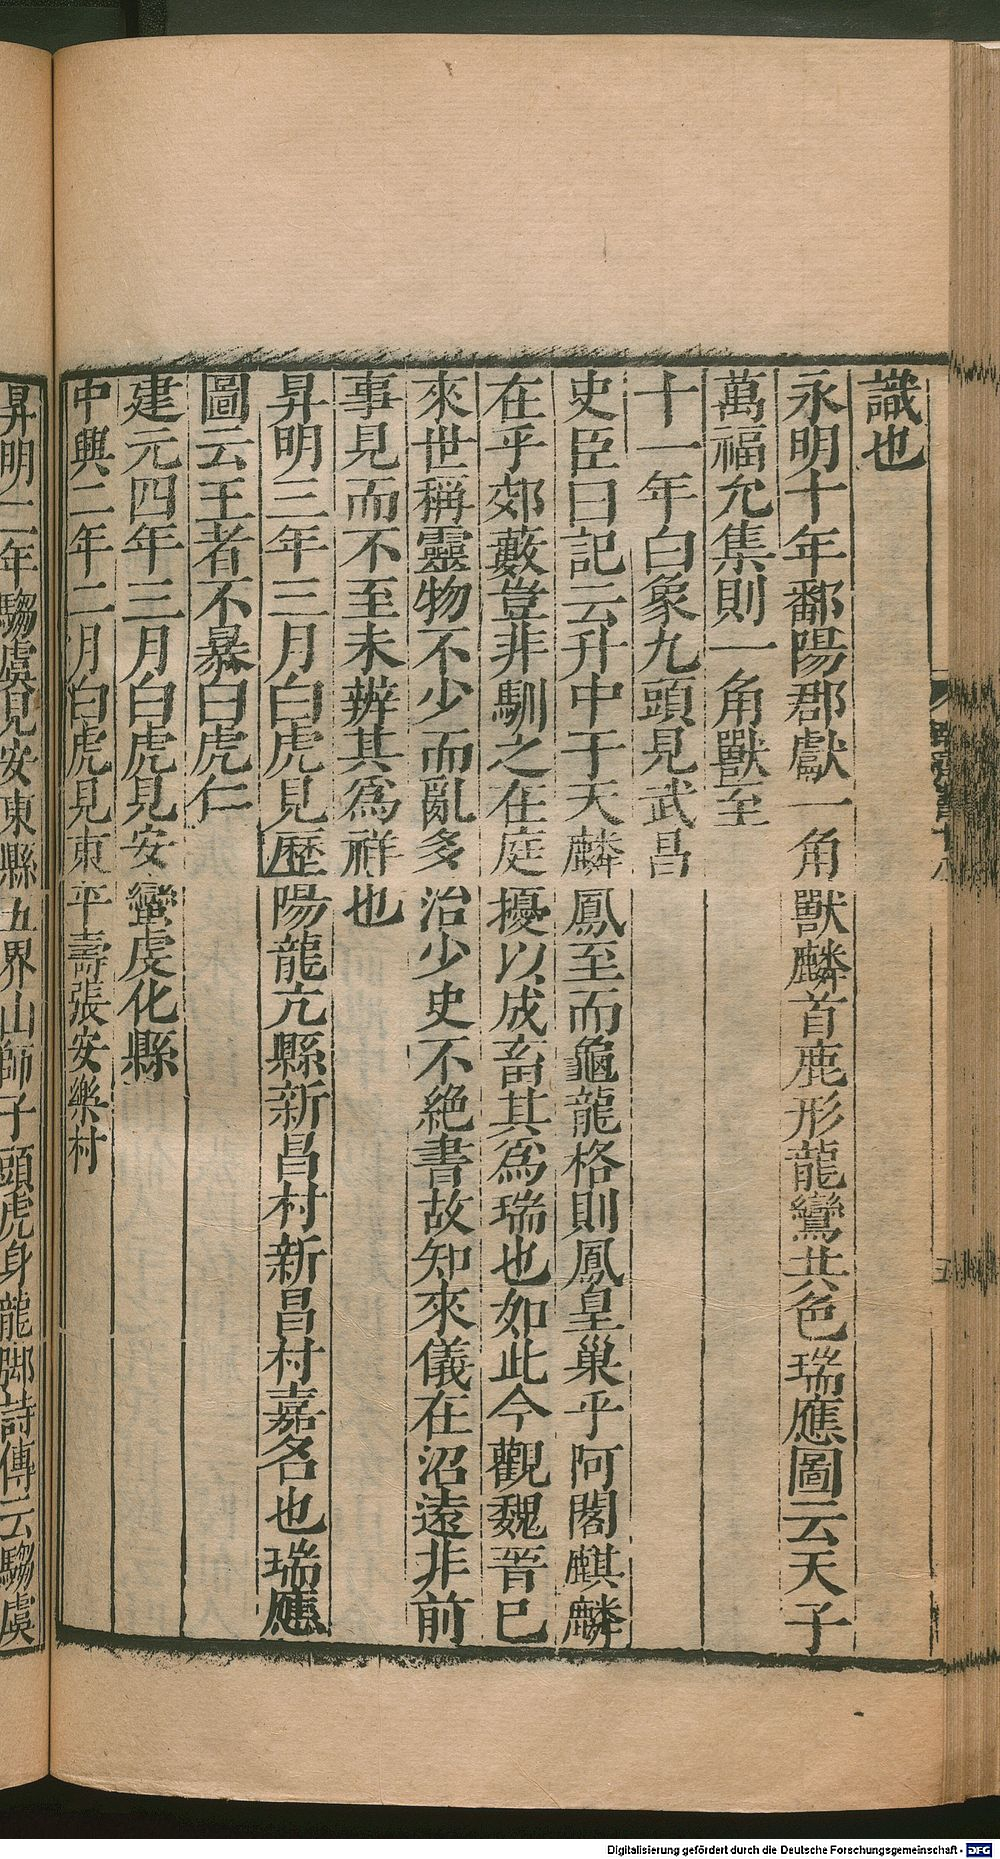 識也
永明十年鄱陽郡獻一角獸麟首鹿形龍鸞共色瑞應圖云天子
萬福允集則一角獸至
十一年白象九頭見武昌
史臣曰記云升中于天麟鳳至而龜龍格則鳳皇巢乎阿閣麒麟
在乎郊藪豈非馴之在庭擾以成畜其為瑞也如此今觀魏晉已
來世稱靈物不少而亂多治少史不絕書故知來儀在沼遠非前
事見而不至未辨其為祥也
昇明三年三月白虎見歷陽龍亢縣新昌村新昌村嘉名也瑞應
圖云王者不暴白虎仁
建元四年三月白虎見安蠻虔化縣
中興二年二月白虎見東平壽張安樂村
昇明二年騶虞見安東縣五界山師子頭虎身龍脚詩傳云騶虞
Digitalisierung gefördert durch die Deutsche Forschungsgemeinschaft - DFG